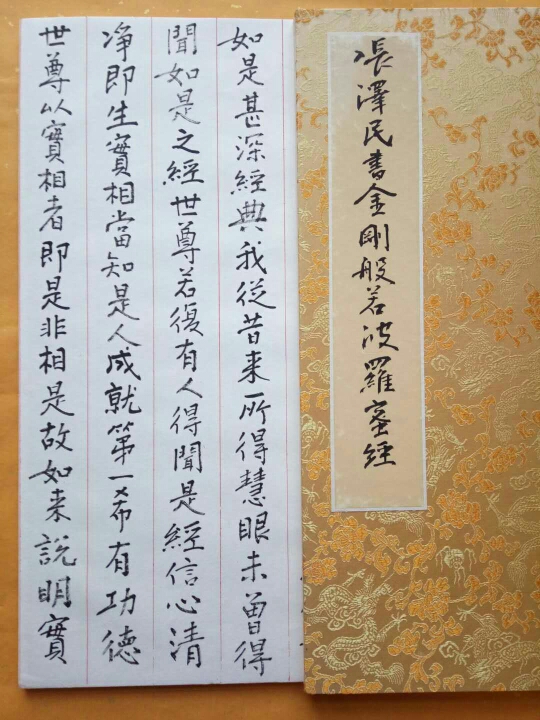 張澤民書金剛般若波羅蜜經
如是甚深經典我從昔来所得慧眼未曽得
聞如是之經世尊若復有人得聞是經信心清
净即生實相當知是人成就第一希有功德
世尊以實相者即是非相是故如来說明實